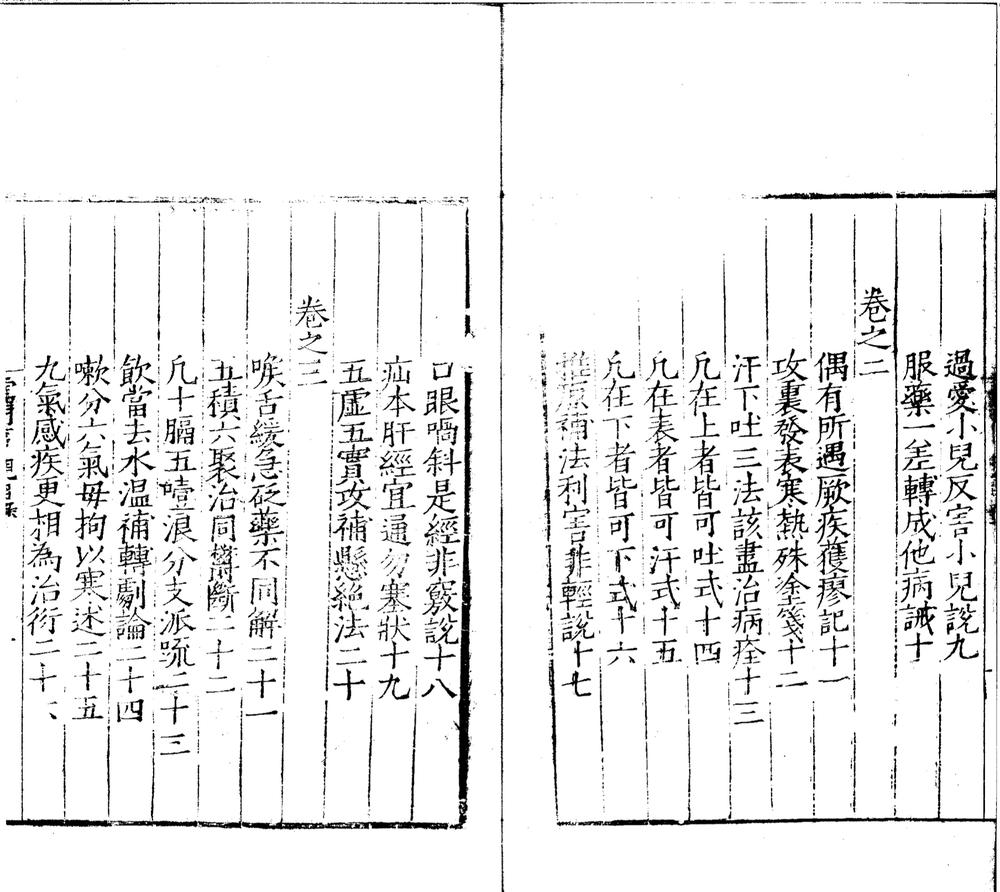 過愛小兒反害小兒說九
服藥一差轉成他病誡十
卷之二
偶有所遇厥疾獲瘳記十一
攻裏發表寒熱殊塗箋十二
汗下吐三法該盡治病痊十三
凢在上者皆可吐式十四
凢在表者皆可汗式十五
凢在下者皆可下式十六
推原補法利害非輕說十七
口眼喎斜是經非竅說十八
疝本肝經宜通勿塞狀十九
五虛五實攻補懸絶法二十
卷之三
喉舌緩急砭藥不同解二十一
五積六聚治同鬱斷二十二
凢十膈五噎浪分支派疏二十三
飲當去水温補轉劇論二十四
嗽分六氣毋拘以寒述二十五
九氣感疾更相為治衍二十六